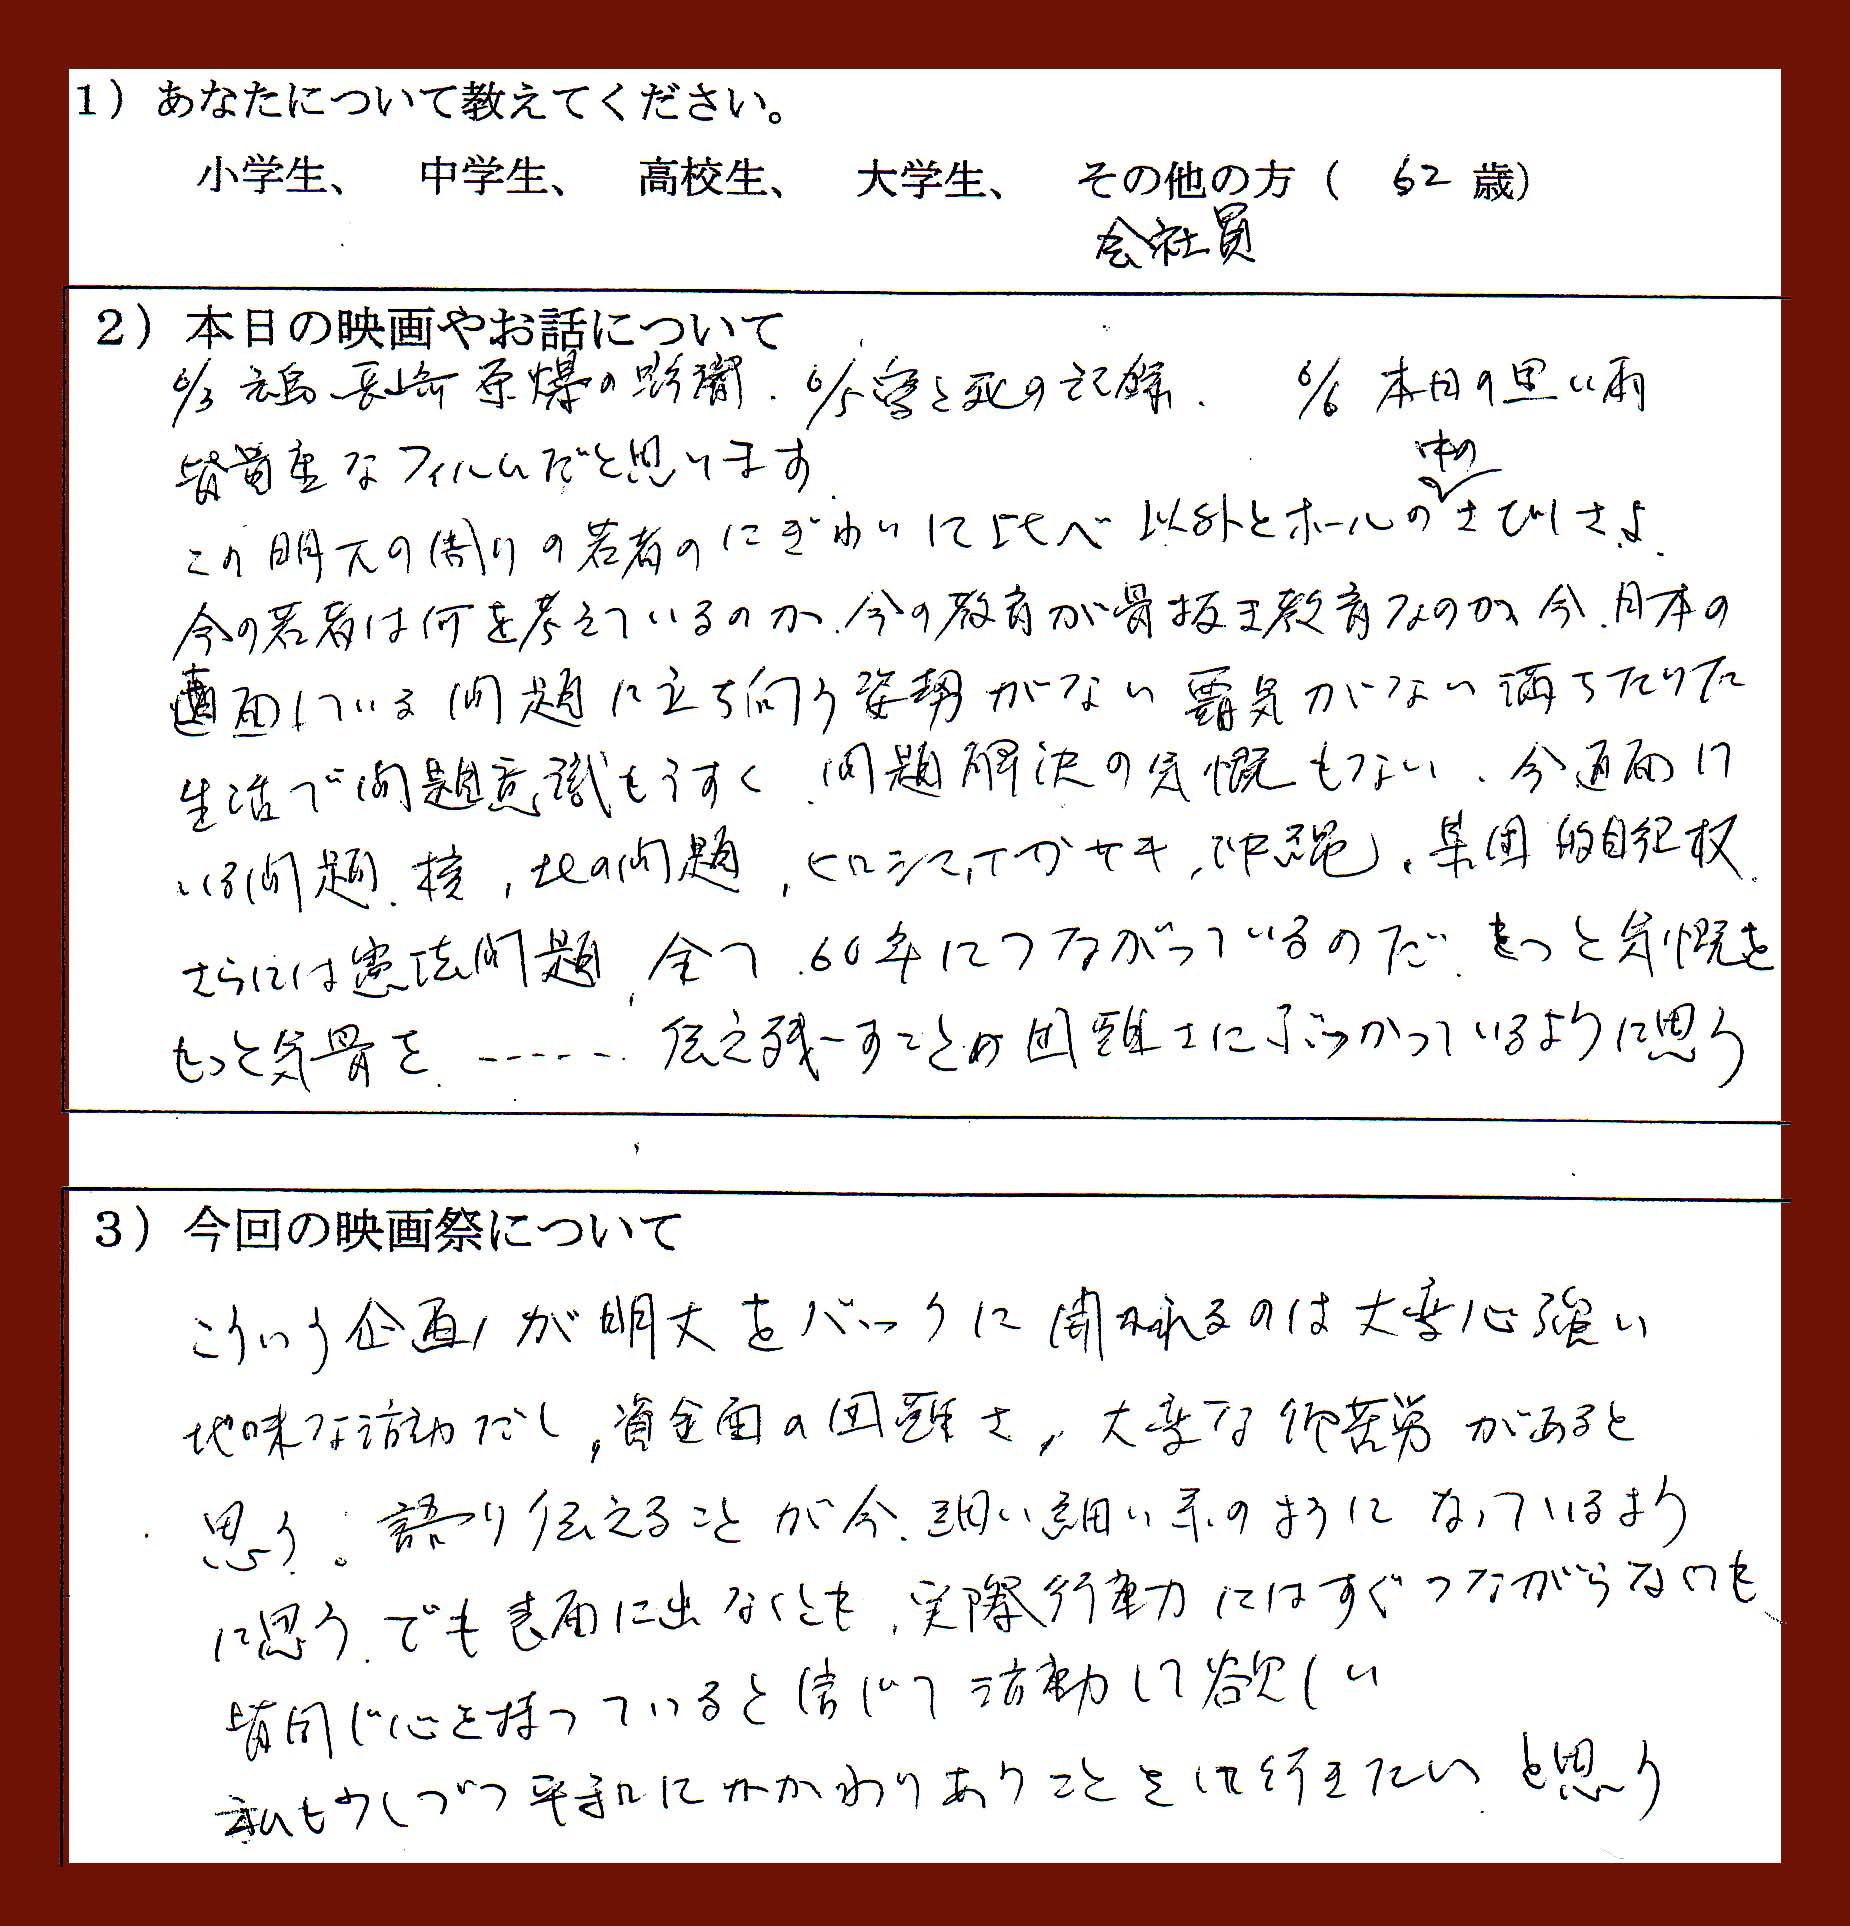 1）あなたについて教えてください。
小学生、 中学生、 高校生、 大学生、 その他の方（ 62 歳）
会社員
2）本日の映画やお話について
6/3 広島 長崎 原爆の影響．6/5 と死の記録． 6/6 本日の黒い雨
皆貴重なフィルムだと思います．
中の
この明大の周りの若者のにぎわいに比べ 以外とホールのさびしさよ．
今の若者は何を考えているのか．今の教育が骨抜き教育なのか、今．日本の
直面している問題に立ち向う姿勢がない 覇気がない 満ちたりた
生活で問題意識もうすく．問題解決の気慨もない．今直面して
いる問題．核，北の問題，ヒロシマ，ナガサキ，沖縄，集団的自衛権．
さらには憲法問題，全て．60年につながっているのだ．もっと気慨を
もっと気骨を．------．伝え残すことの困難さにぶつかっているように思う
3）今回の映画祭について
こういう企画が明大をバックに開かれるのは大変心強い
地味な活動だし，資金面の困難さ，大変な御苦労があると
思う。語り伝えることが今．細い細い糸のようになっているよう
に思う．でも表面に出なくとも．実際行動にはすぐつながらなくも
皆同じ心を持っていると信じて活動して欲しい
私も少しづつ平和にかかわりあうことをして行きたいと思う